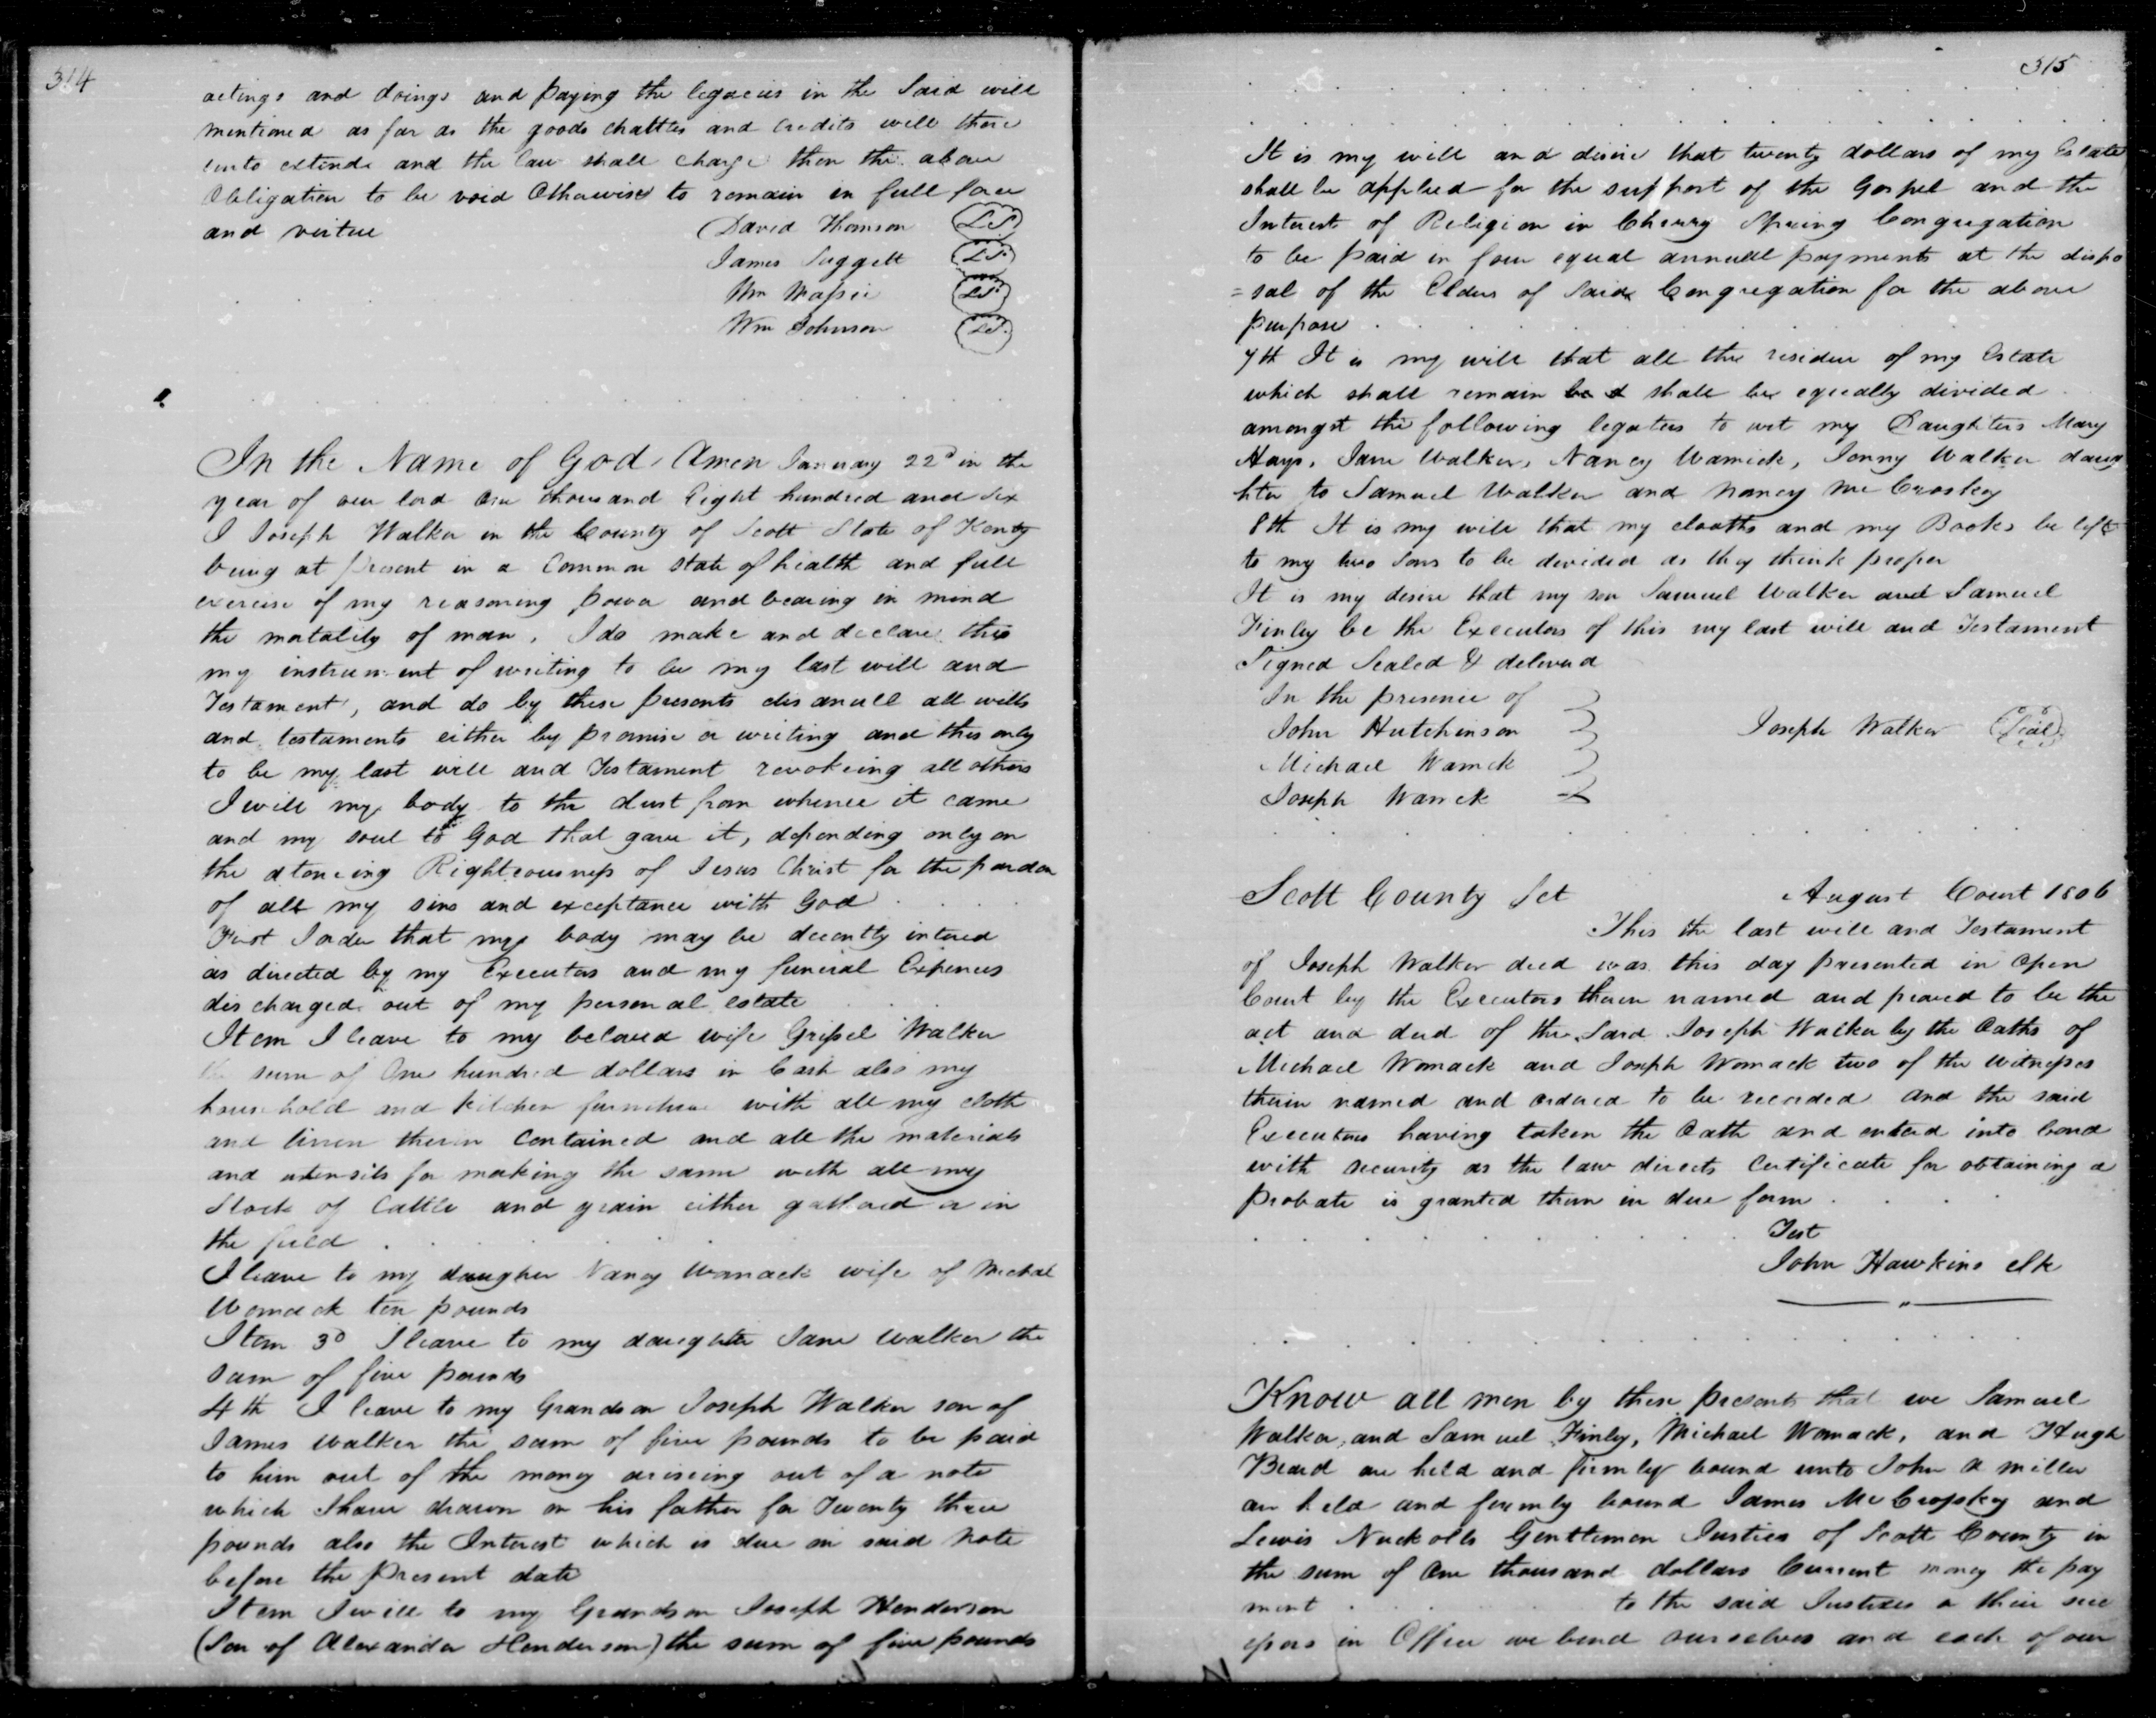 314
actings and doings and paying the legacies in the Said will
mentioned as far as the goods chattles and Credits will there
unto extend and the law shall charge then the above
Obligation to be void Otherwise to remain in full force
and virtue David Thomson L.S.
James Suggett L.S.
Wm Massie L.S.
Wm Johnson L.S.
In the Name of God, Amen January 22d in the
year of our lord One thousand Eight hundred and Six
I Joseph Walker in the County of Scott State of Kenty
being at present in a Common state of health and full
exercise of my reasoning power and bearing in mind
the mortality of man, I do make and declare this
my instrument of writing to be my last will and
Testament, and do by these presents disanull all wills
and testaments either by promise or writing and this only
to be my last will and Testament revokeing all others
I will my body to the dust from whence it came
and my soul to God that gave it, depending only on
the atoneing Righteousness of Jesus Christ for the pardon
of all my sins and exceptance with God
First I order that my body may be decently intered
as directed by my Executors and my funeral Expences
discharged out of my personal estate
Item I leave to my beloved wife Grissel Walker
the sum of One hundred dollars in Cash also my
household and kitchen furniture with all my cloth
and linnen therin Contained and all the materials
and utensils for making the same with all my
Stock of Cattle and grain either gathered or in
the field
I leave to my daugher Nancy Womack wife of Michal
Womack ten pounds
Item 3d I leave to my daughter Jane Walker the
sum of five pounds
4th I leave to my Grandson Joseph Walker son of
James Walker the sum of five pounds to be paid
to him out of the money ariseing out of a note
which I have drawn on his father for Twenty three
pounds also the Interest which is due on said note
before the present date
Item I will to my Grandson Joseph Henderson
(Son of Alexander Henderson) the sum of five pounds
315
It is my will and desire that twenty dollars of my Estate
shall be applied for the support of the Gospel and the
Interest of Religion in Cherry Spring Congregation
to be paid in four equal annuell payments at the dispo
=sal of the Elders of Said Congregation for the above
purpose
7th It is my will that all the residue of my Estate
which shall remain shall be equally divided
amongst the following legatees to wit my Daughters Mary
Hays, Jane Walker, Nancy Wamick, Jenny Walker daug
hter to Samuel Walker and Nancy McCroskey
8th It is my will that my clooths and my Books be left
to my two sons to be devided as they think proper
It is my desire that my son Samuel Walker and Samuel
Finley be the Executors of this my last will and Testament
Signed Sealed & deliverd
In the presence of
John Hutchinson Joseph Walker Seal
Michael Warnick
Joseph Warrick
Scott County Sct August Court 1806
This the last will and Testament
of Joseph Walker decd was this day presented in Open
Court by the Executors therein named and proved to be the
act and deed of the Said Joseph Walker by the Oaths of
Michael Womack and Joseph Womack two of the witnesses
therin named and ordered to be recorded and the said
Executors having taken the Oath and entered into bond
with security as the law directs Certificate for obtaining a
probate is granted them in due form
Test
John Hawkins clk
Know all men by these presents that we Samuel
Walker, and Samuel Finley, Michael Womack, and Hugh
Beard are held and firmley bound unto John A Miller
are held and firmly bound James McCrosskey and
Lewis Nuckolls Gentlemen Justices of Scott County in
the sum of One thousand dollars Current money the pay
ment to the said Justices or their suc
essors in Office we bend ourselves and each of our